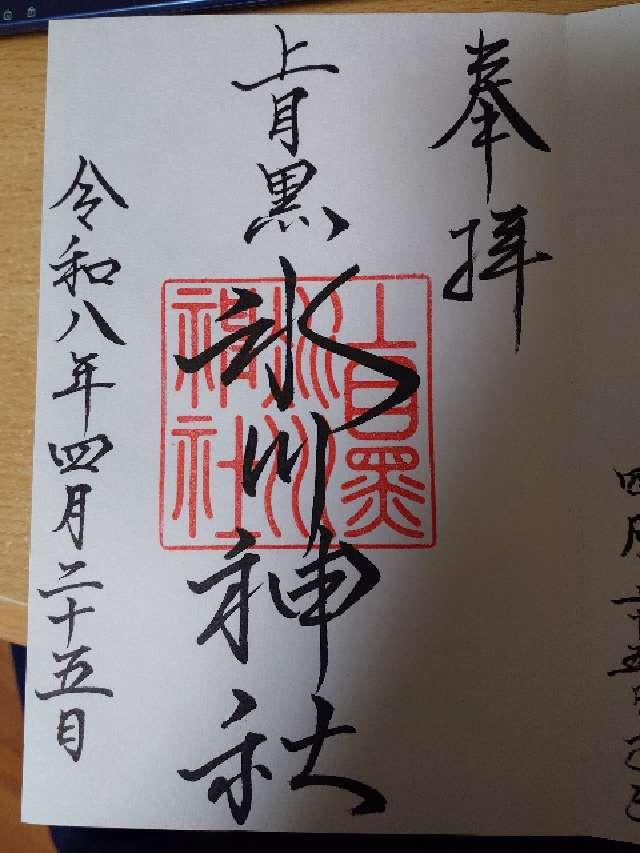 奉拝
上目黒氷川神社
上目黒
氷川
神社
令和八年四月二十五日